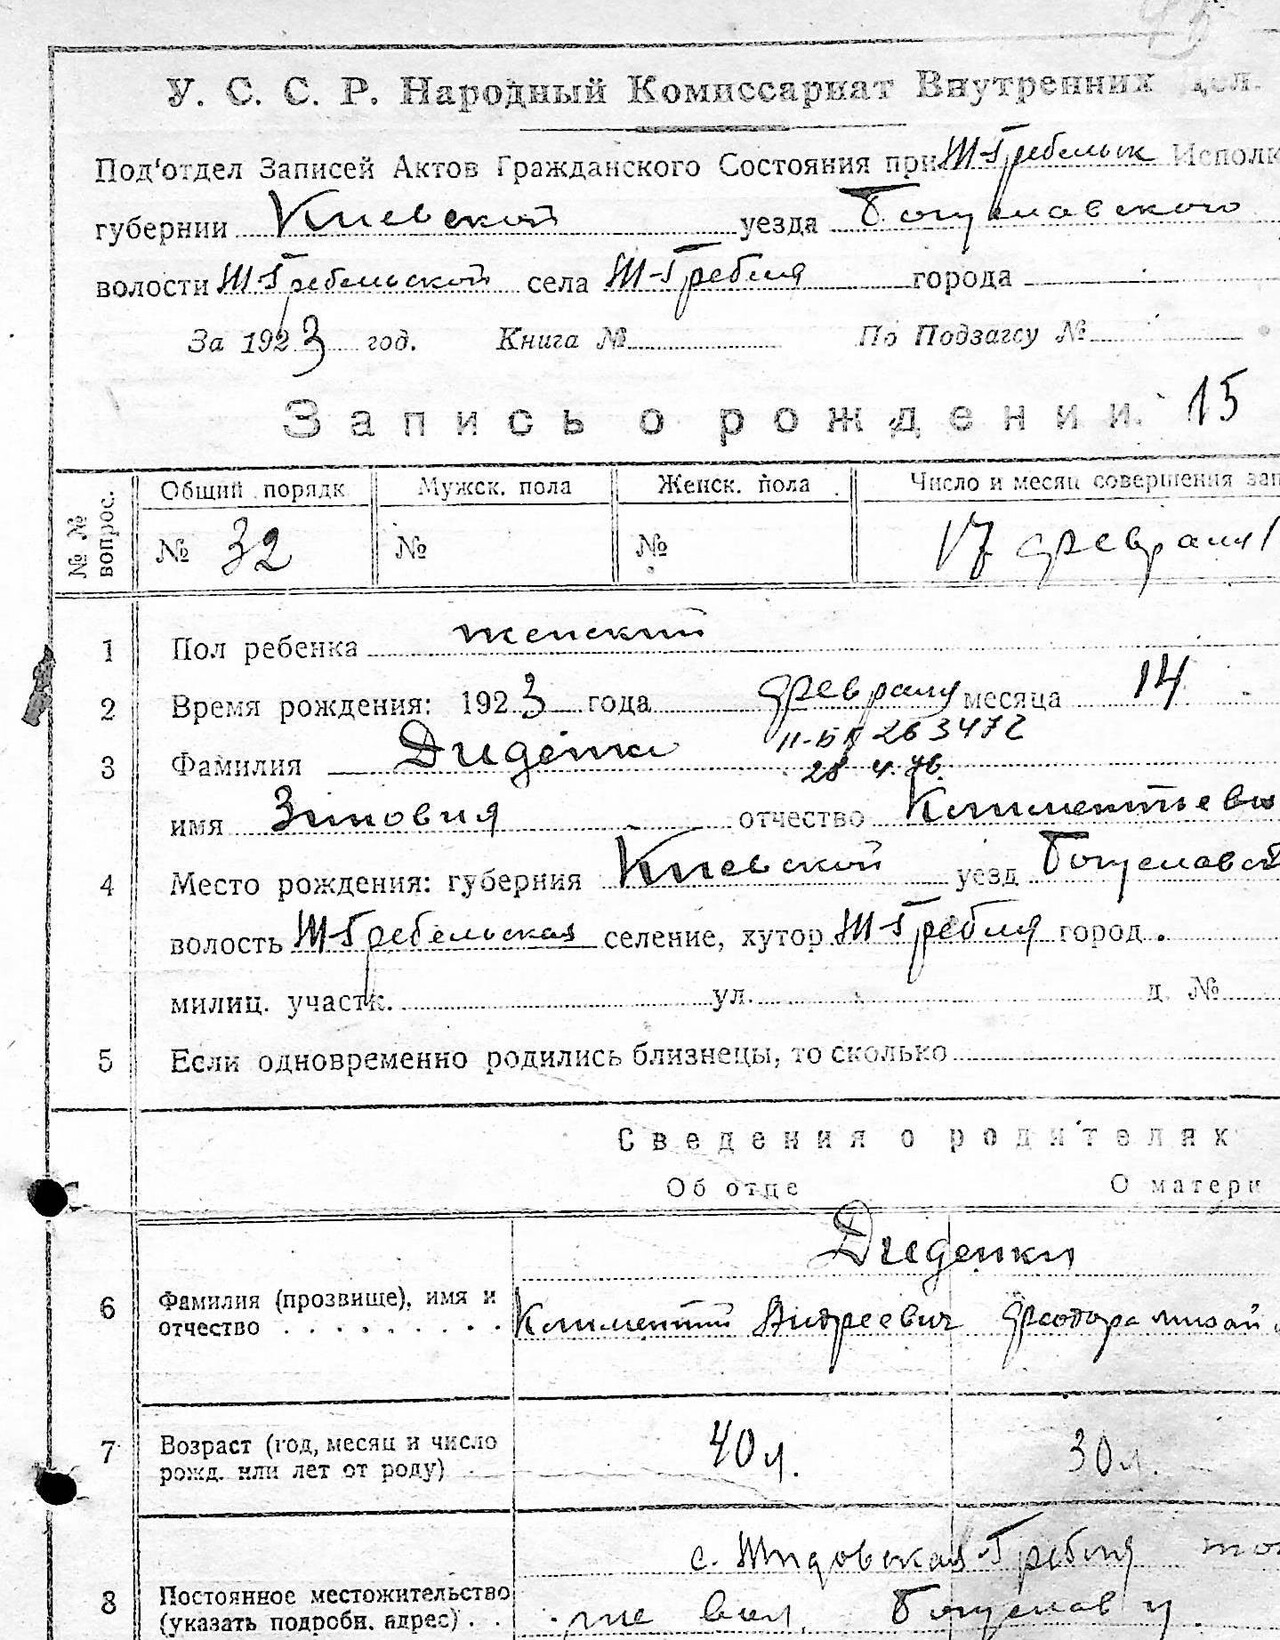 У. С. С. Р. Народный Комиссариат Внутренних Дел.
Под'отдел Записей Актов Гражданского Состояния при Ж-Гребельск Исполк
губернии Киевской уезда Богуславского
волости Ж-Гребельской села Ж-Гребля города
За 1923 год. Книга № По Подзагсу №
Запись о рождении. 15
№ № вопрос. Общий порядк Мужск. пола Женск. пола Число и месяц совершения зап
№ 32 № № 17 февраля
1 Пол ребенка женский
2 Время рождения: 1923 года февраля месяца 14
263472
3 Фамилия Диденко
28 4. 76.
имя Зиновия отчество Климентьевн
4 Место рождения: губерния Киевской уезд Богуславск
волость Ж-Гребельская селение, хутор Ж-Гребля город .
милиц. участк. ул. д. №
5 Если одновременно родились близнецы, то сколько
Сведения о родителях
Об отце О матери
Диденки
6 Фамилия (прозвище), имя и
отчество Климентий Андреевич Феодора Михай
7 Возраст (год, месяц и число
рожд. или лет от роду) 40 л. 30 л.
с. Жидовская-Гребля
8 Постоянное местожительство
(указать подробн. адрес) же вол. Богуслав у.